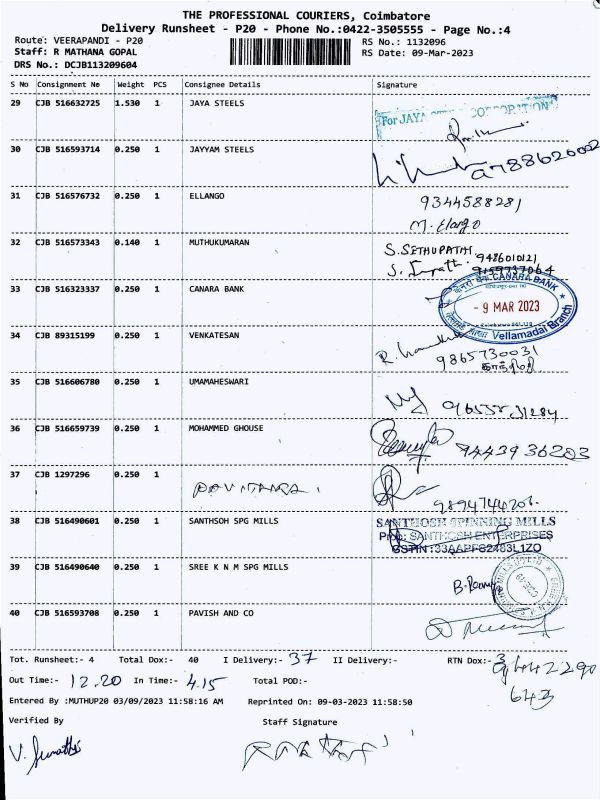 THE PROFESSIONAL COURIERS, Coimbatore
Delivery Runsheet - P20 - Phone No.:0422-3505555 - Page No.:4
Route: VEERAPANDI - P20
RS No.: 1132096
Staff: R MATHANA GOPAL
RS Date: 09-Mar-2023
DRS No.: DCJB113209604
S No Consignment No Weight PCS Consignee Details Signature
29 CJB 516632725 1.530 1 JAYA STEELS
For JAYA CORPORATION
30 CJB 516593714 0.250 1 JAYYAM STEELS
31 CJB 516576732 0.250 1 ELLANGO 9344588281
M. Elango
32 CJB 516573343 0.140 1 MUTHUKUMARAN S. SETHUPATHI
9486010121
9159737064
33 CJB 516323337 0.250 1 CANARA BANK
CANARA BANK
- 9 MAR 2023
Vellamadai Branch
34 CJB 89315199 0.250 1 VENKATESAN
9865730031
35 CJB 516606780 0.250 1 UMAMAHESWARI
36 CJB 516659739 0.250 1 MOHAMMED GHOUSE 9443936203
37 CJB 1297296 0.250 1
38 CJB 516490601 0.250 1 SANTHSOH SPG MILLS SANTHOSH SPINNING MILLS
Prop: SANTHOSH ENTERPRISES
39 CJB 516490640 0.250 1 SREE K N M SPG MILLS
40 CJB 516593708 0.250 1 PAVISH AND CO
Tot. Runsheet:- 4 Total Dox:- 40 I Delivery:- 37 II Delivery:- RTN Dox:- 3
Out Time:- 12.20 In Time:- 4.15 Total POD:-
643
Entered By :MUTHUP20 03/09/2023 11:58:16 AM Reprinted On: 09-03-2023 11:58:50
Verified By Staff Signature